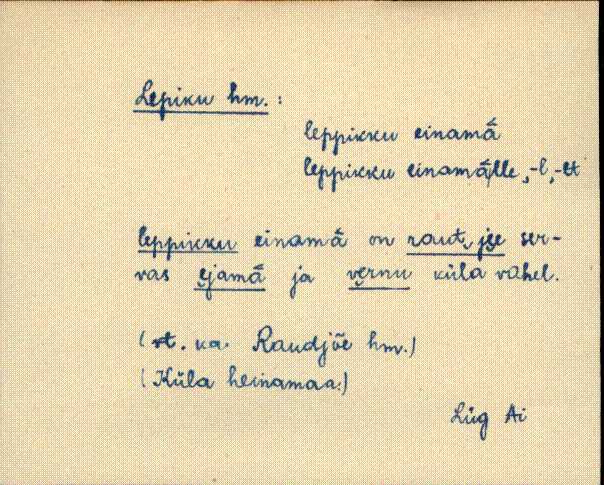 Lepiku hm.:
leppikku einamǟ
leppikku einamǟlle, -l, -lt
leppikku einamǟ on raut, jẹe ser-
vas ẹjamǟ ja vẹrnu küla vahel.
(vt. ka. Raudjõe hm.)
(Küla heinamaa.)
Lüg Ai